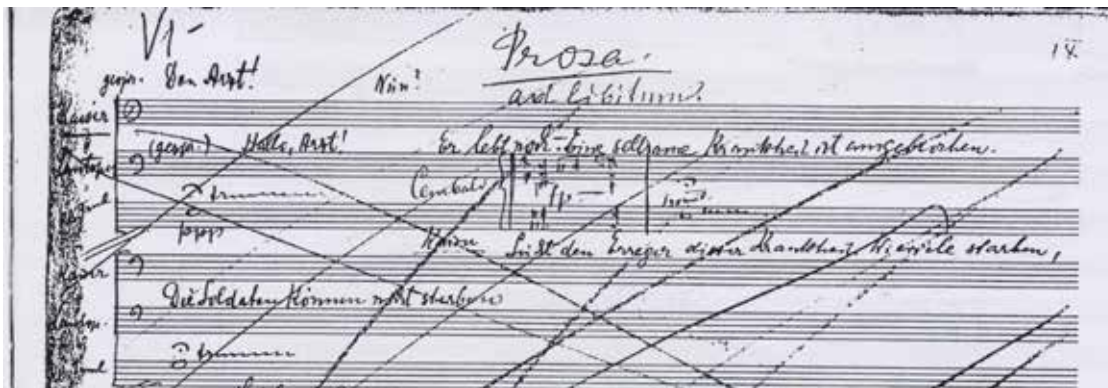 VI-
Prosa.
ad libitum.
14.
gespr. Den Arzt!
Nun?
Kaiser
(gespr.) Hallo, Arzt!
Er lebt noch - Eine seltsame Krankheit ist ausgebrochen.
Cembalo
pp
ppp
Kaiser
den Erreger dieser Krankheit. Wieviele starben,
Kaiser
Die Soldaten können nicht sterben